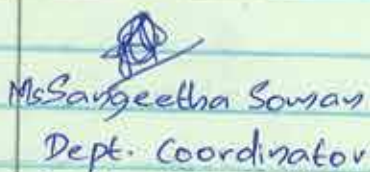 Ms Sangeetha Soman
Dept. Coordinator